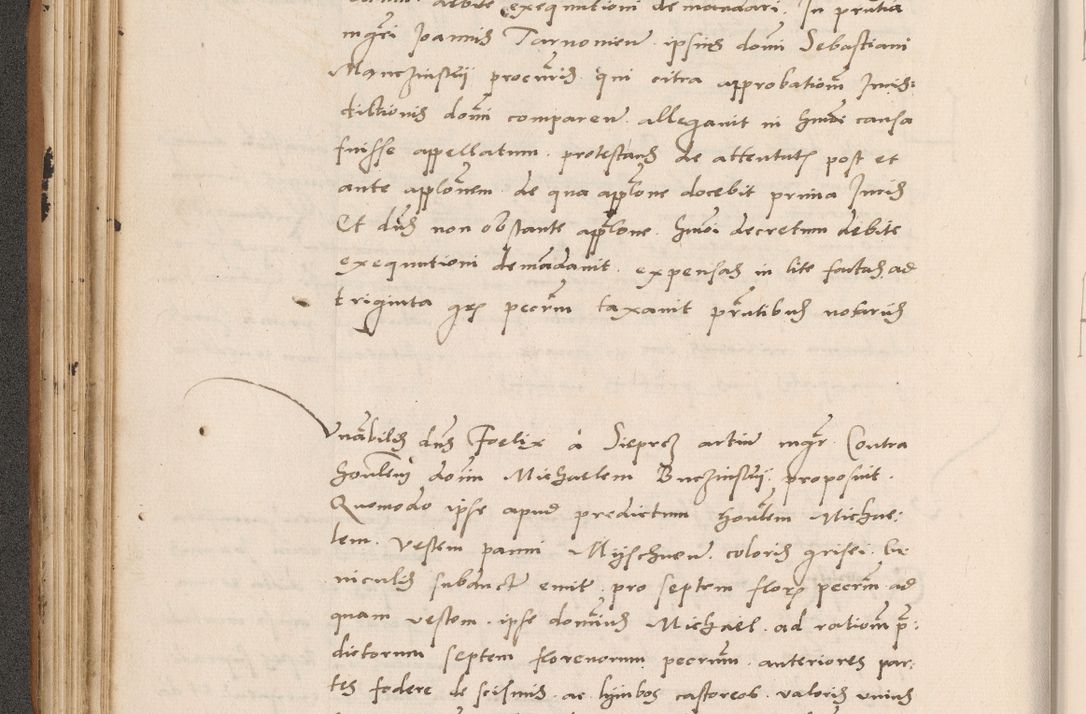 debite exequutioni demandari. In pñtia
mgři Joannis Tarnomien̄ ipsius domi Sebastiani
Manczinskij procuris qui citra approbationem Juris-
dictionis domi comparen̄ allegavit in hmōi causa
fuisse appellatum. protestans de attentatis post et
ante applonem. de qua applone docebit prima Juris
Et dns non obstante applone. hmōi decretum debite
exequutioni demādavit. expensas in lite factas ad
triginta gros pecūn taxavit pñtibus notarijs
Vnābilis dns Foelix à Sieprcz artiū mgr̄ Contra
honlem̄ domi Michaelem Buczinskij. proposuit.
Quomodo ipse apud predictum honlem Michae-
lem. vestem panni Mÿschnen̄. coloris grisei. Cu-
niculis subduct̄ emit. pro septem floř pecūn ad
quam vestem. ipse dominus Michael. ad rationem p̄-
dictorum septem florenorum pecunn̄. anteriores par-
tes fodere de scismis. ac limbos castoreos. valoris unius